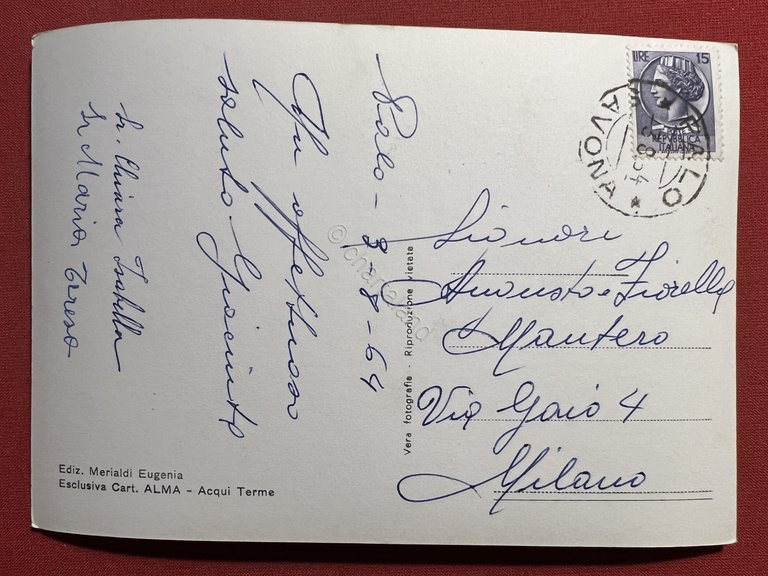 Palo - 3-8-64
Un affettuoso
saluto. Giacinta
Sr. Chiara Isabella
Sr Maria Teresa
Ediz. Merialdi Eugenia
Esclusiva Cart. ALMA - Acqui Terme
Vera fotografia - Riproduzione vietata
LIRE 15
REPUBBLICA
ITALIANA
PALO
AVONA
Signori
Augusto e Fiorella
Mantero
Via Gaio 4
Milano